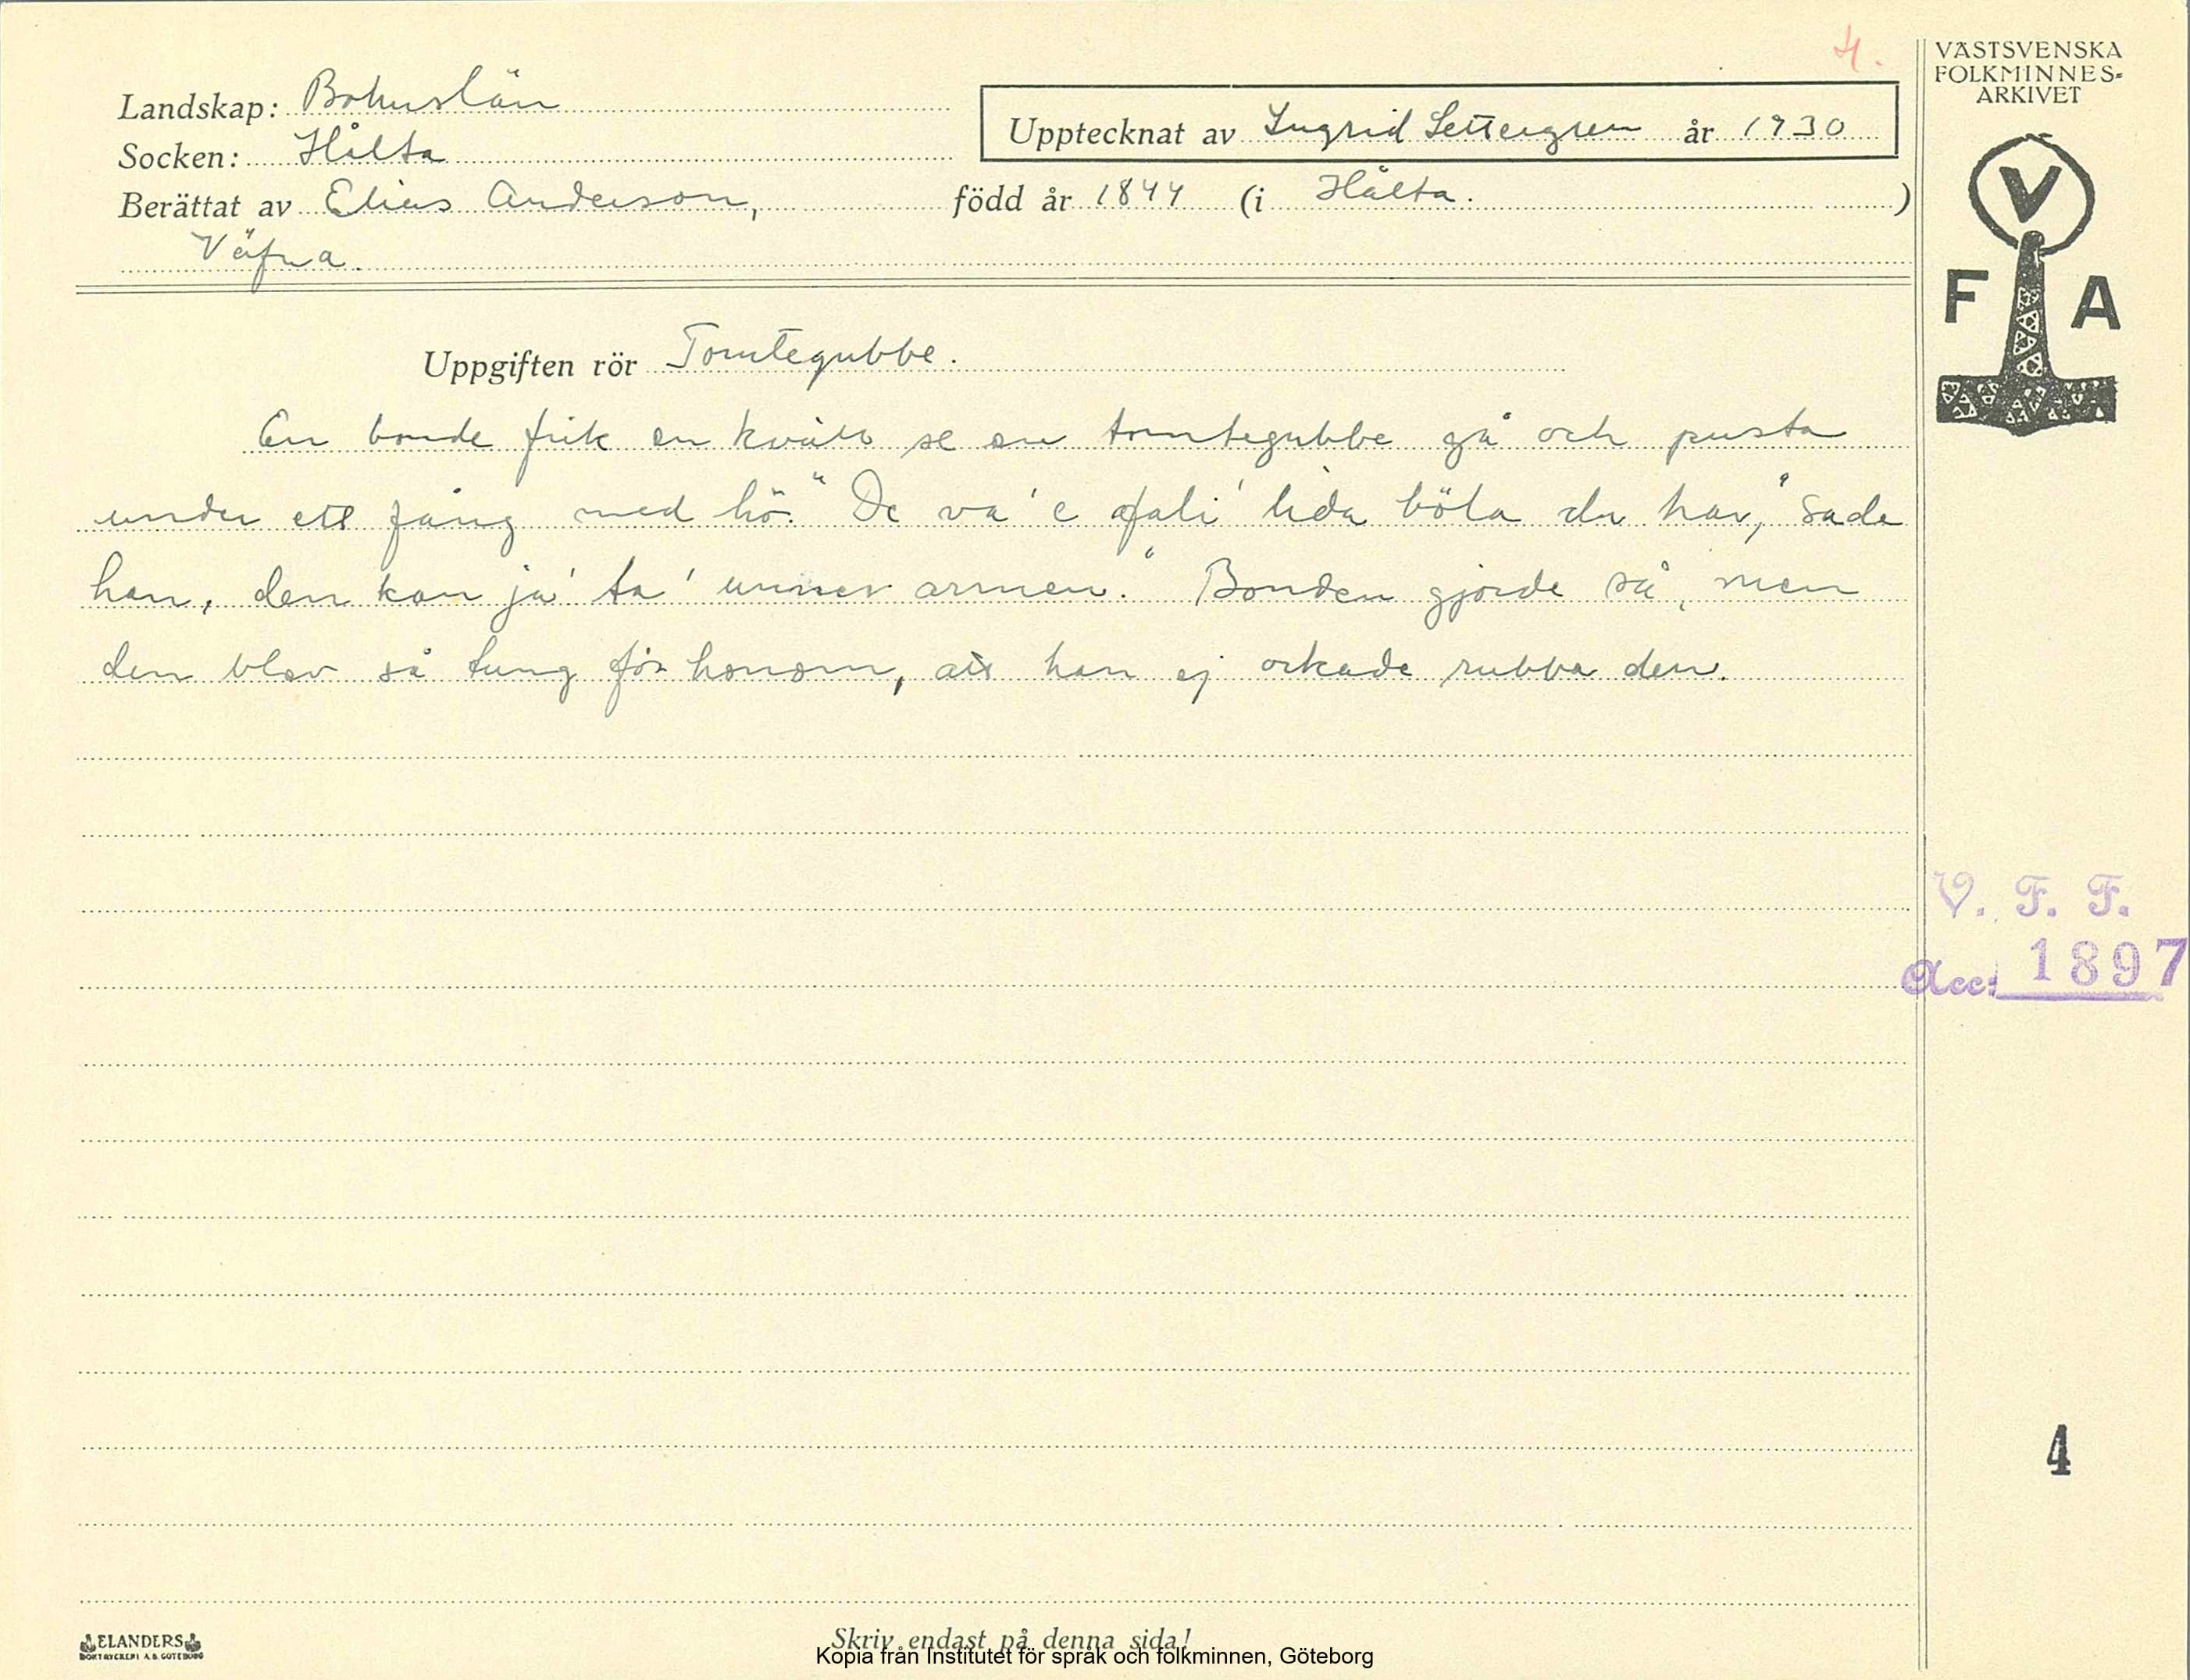 4.
VÄSTSVENSKA
FOLKMINNES-
ARKIVET
Landskap: Bohuslän
Upptecknat av Ingrid Settergren år 1930
Socken: Hålta
Berättat av Elias Anderson, född år 1844 (i Hålta. )
Väfna.
V
F A
Uppgiften rör Tomtegubbe.
En bonde fick en kväll se en tomtegubbe gå och pusta
under ett fång med hö. "De va' e ofali' lida böla du har," sade
han, den kan ja' ta' unner armen." Bonden gjorde så, men
den blev så tung för honom, att han ej orkade rubba den.
V. F. F.
Acc: 1897
4
ELANDERS
BOKTRYCKERI A.B. GÖTEBORG
Skriv endast på denna sida!
Kopia från Institutet för språk och folkminnen, Göteborg